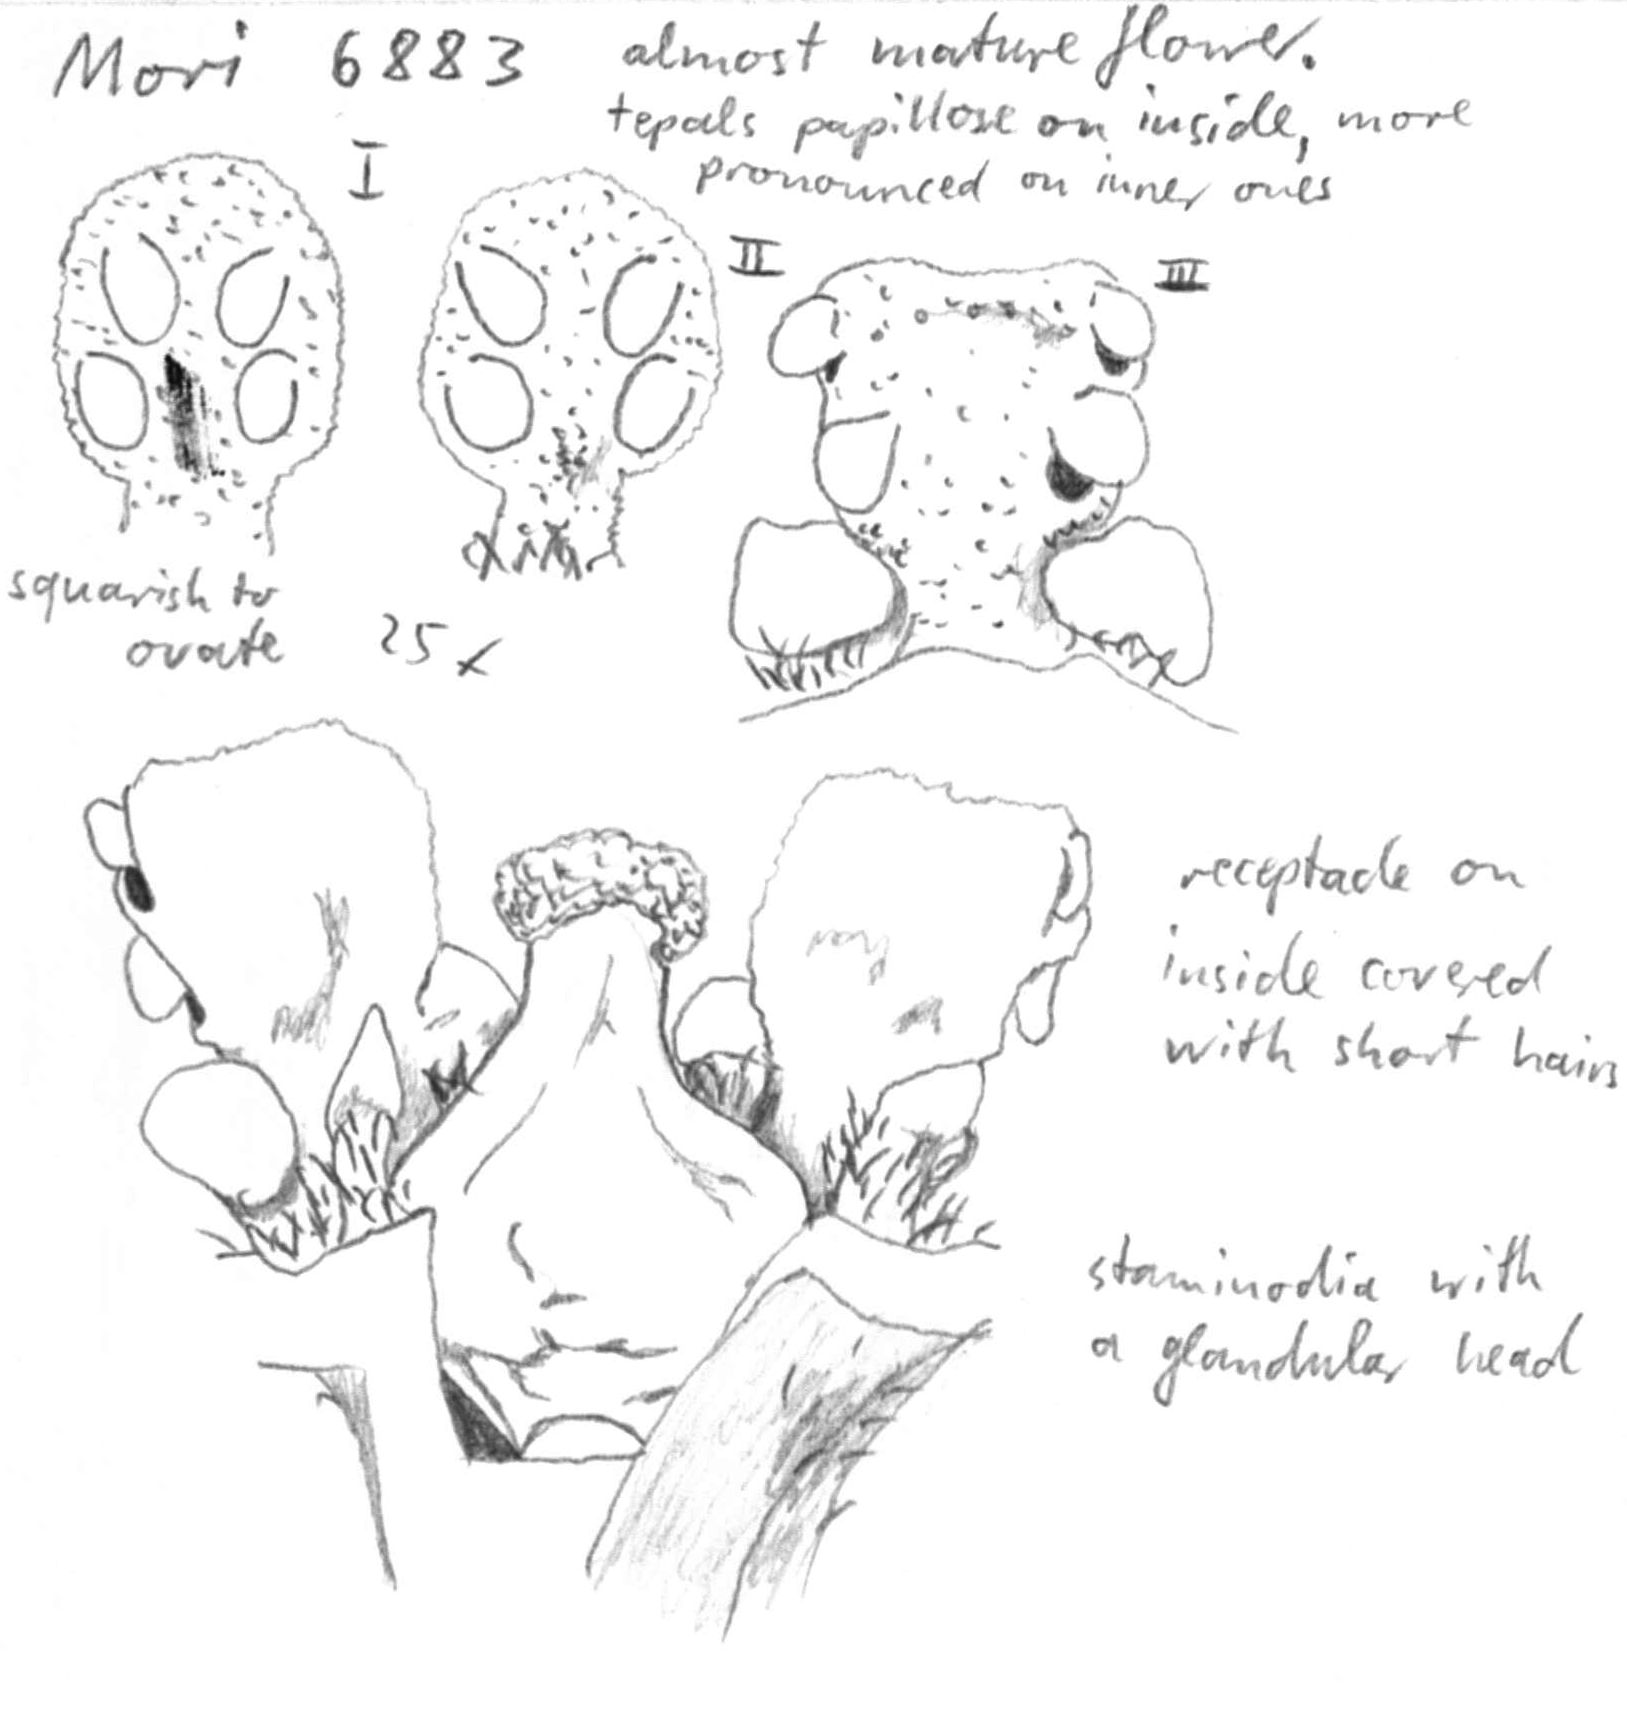 Mori 6883
almost mature flower.
tepals papillose on inside, more
pronounced on inner ones
I
II
III
squarish to
ovate
25x
receptacle on
inside covered
with short hairs
staminodia with
a glandular head